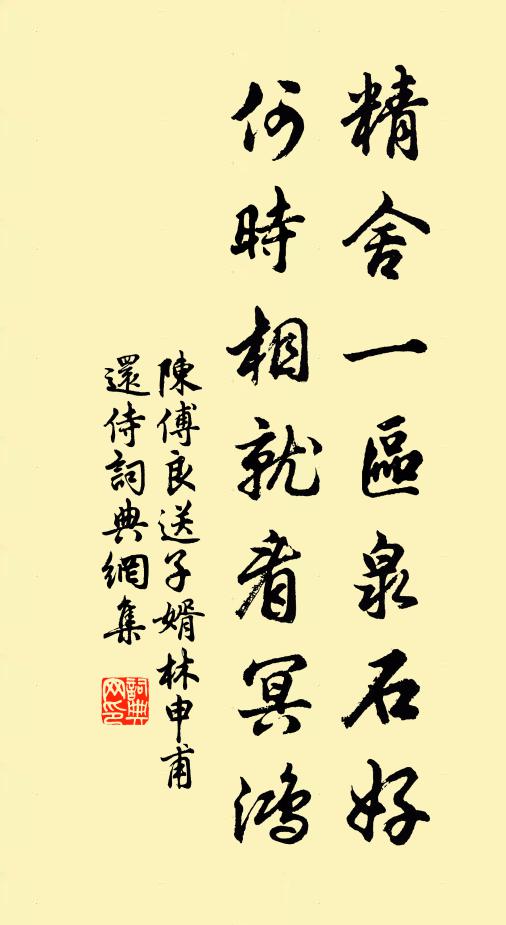 精舍一區泉石好
何時相就看冥鴻
陳傅良送子婿林申甫
還侍詞典網集
詞典網印